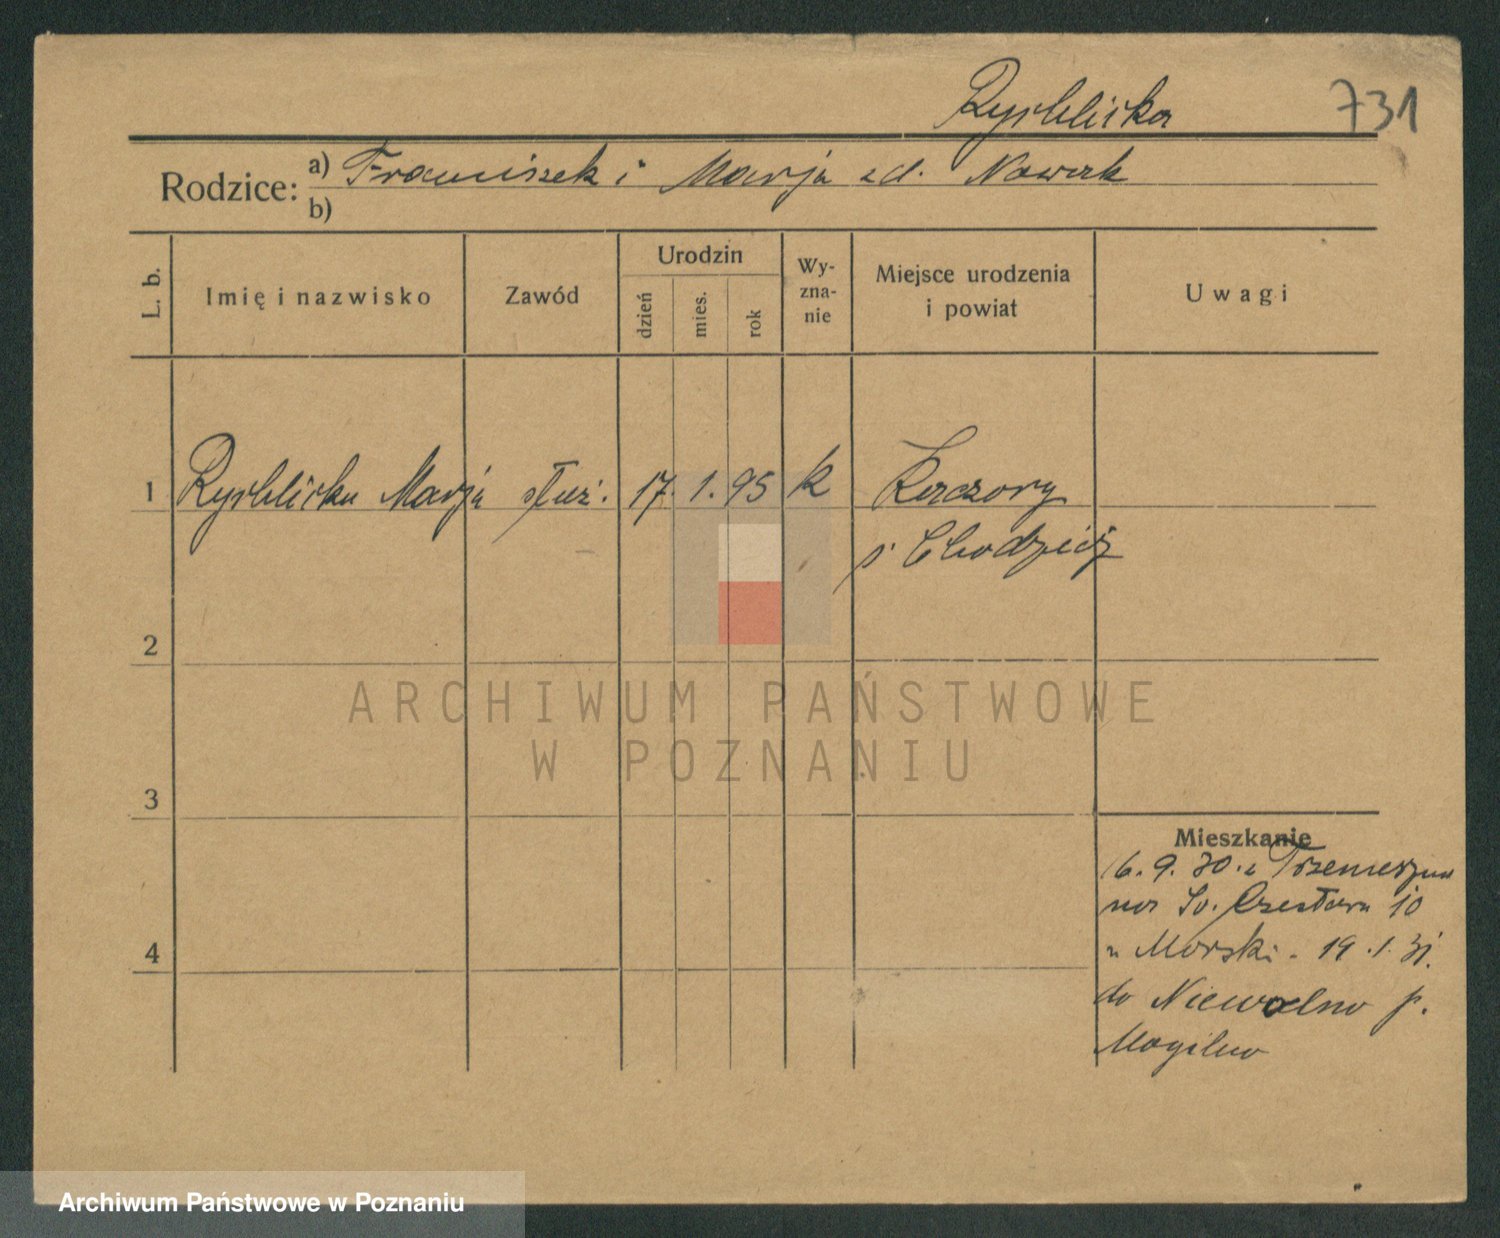 Rychlicka 731
Rodzice: a) Franciszek i Marja zd. Nowak
b)
L. b. Imię i nazwisko Zawód Urodzin dzień mies. rok Wy-zna-nie Miejsce urodzenia i powiat Uwagi
1 Rychlicka Marja służ. 17. 1. 95 k Kaczory
p. Chodzież
2
3
4
Mieszkanie
16. 9. 30. z Trzemeszna
na Św. Czesława 10
u Morski. 19. 1. 31.
do Niewolno p.
Mogilno
ARCHIWUM PAŃSTWOWE
W POZNANIU
Archiwum Państwowe w Poznaniu